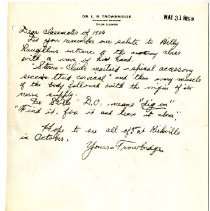 DR. L. R. TROWBRIDGE
MAY 31 1956
Dear Classmates of 1906
Do you remember our salute to Billy
Laughlin's entrance of the anatomy class
with a wave of his hand
"Sterno-Cleido mastoid - spinal accessory
second third cervical" and then every muscle
of the body followed with the origin of its
nerve supply.
Dr Still's "D.O. means "dig on"
"Find it, fix it and leave it alone"
Hope to see all of at Kirksville
in October.
Yours - Trowbridge